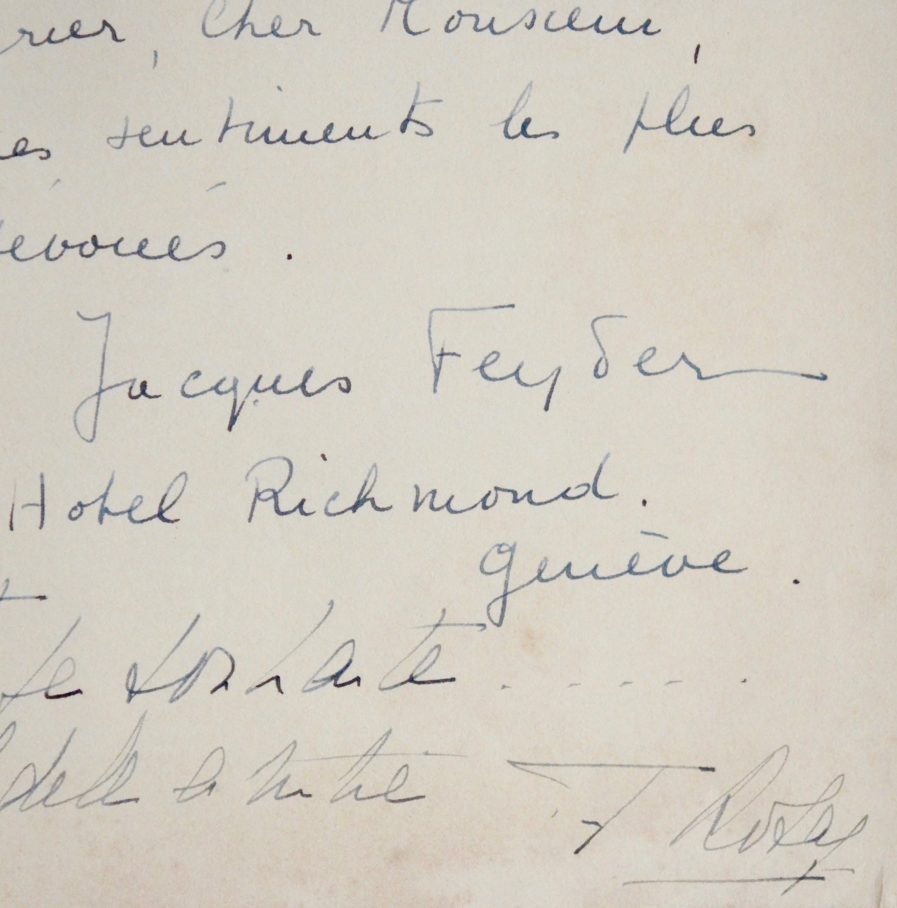 rier, Cher Monsieur,
es sentiments les plus
évoués.
Jacques Feyder
Hotel Richmond.
Genève.
souhaite . . . . .
amitié F Rosay